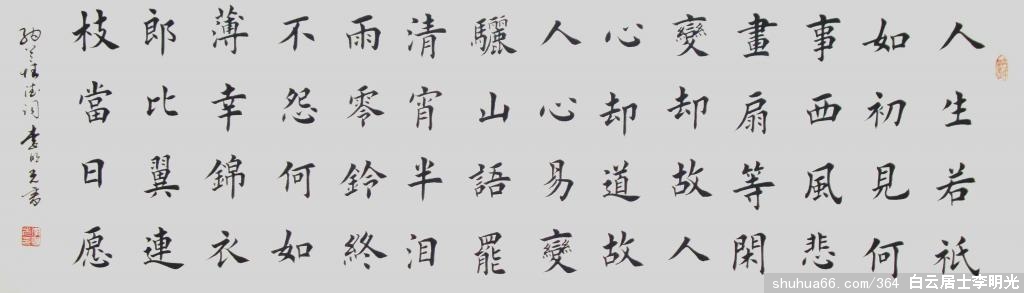 人生若祇
如初見何
事西風悲
畫扇等閑
變却故人
心却道故
人心易變
驪山語罷
清宵半泪
雨零鈴終
不怨何如
薄幸錦衣
郎比翼連
枝當日愿
納蘭性德詞 李明光書
shuhua66.com/364 白云居士李明光